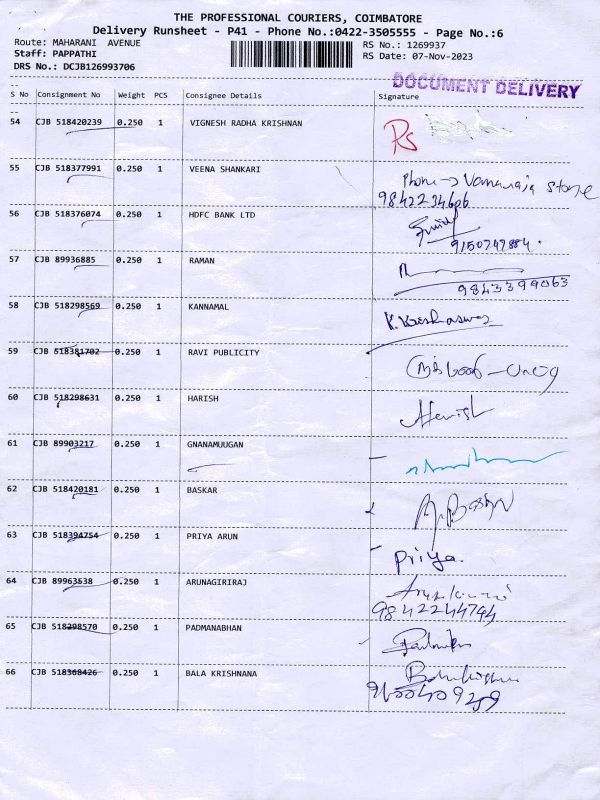 THE PROFESSIONAL COURIERS, COIMBATORE
Delivery Runsheet - P41 - Phone No.:0422-3505555 - Page No.:6
Route: MAHARANI AVENUE RS No.: 1269937
Staff: PAPPATHI RS Date: 07-Nov-2023
DRS No.: DCJB126993706
DOCUMENT DELIVERY
S No Consignment No Weight PCS Consignee Details Signature
54 CJB 518420239 0.250 1 VIGNESH RADHA KRISHNAN Rs
55 CJB 518377991 0.250 1 VEENA SHANKARI Phone -> Vanaraja store
9842234606
56 CJB 518376074 0.250 1 HDFC BANK LTD
9150749884.
57 CJB 89936885 0.250 1 RAMAN
9843399063
58 CJB 518298569 0.250 1 KANNAMAL
59 CJB 518381702 0.250 1 RAVI PUBLICITY
60 CJB 518298631 0.250 1 HARISH Harish
61 CJB 89903217 0.250 1 GNANAMUUGAN
62 CJB 518420181 0.250 1 BASKAR
63 CJB 518394754 0.250 1 PRIYA ARUN Priya.
64 CJB 89963538 0.250 1 ARUNAGIRIRAJ
9842244744
65 CJB 518298570 0.250 1 PADMANABHAN
66 CJB 518368426 0.250 1 BALA KRISHNANA